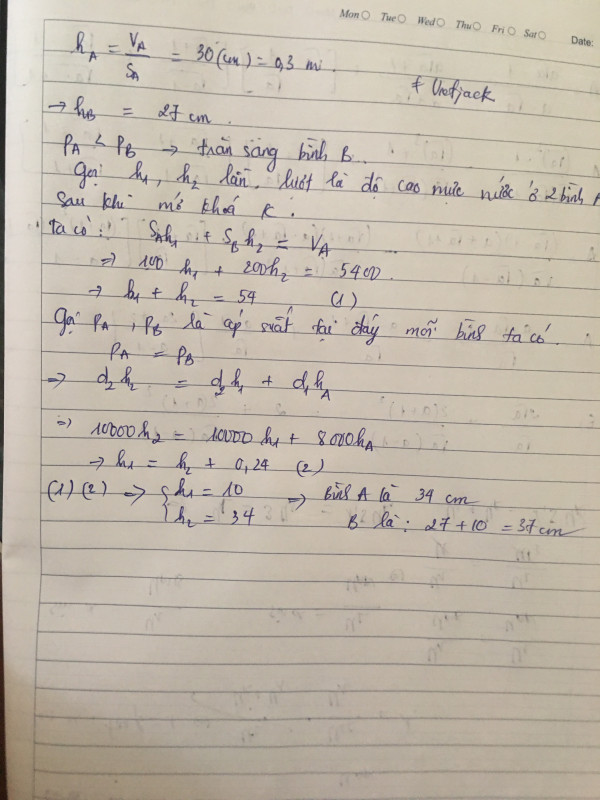 Mon Tue Wed Thu Fri Sat
Date:
h_A = V_A/S_A = 30 (cm) = 0,3 m.
→ h_B = 27 cm.
P_A < P_B → tràn sang bình B.
Gọi h₁, h₂ lần lượt là độ cao mực nước ở 2 bình A
sau khi mở khoá K.
ta có: S_A h₁ + S_B h₂ = V_A
⇒ 100 h₁ + 200h₂ = 5400.
→ h₁ + h₂ = 54 (1)
Gọi P_A, P_B là áp suất tại đáy mỗi bình ta có.
P_A = P_B
⇒ d₂h₂ = d₂h₁ + d₁h_A
⇒ 10000h₂ = 10000h₁ + 8000h_A
→ h₁ = h₂ + 0,24 (2)
(1) (2) ⇒ { h₁ = 10 ⇒ Bình A là 34 cm
h₂ = 34 B là: 27 + 10 = 37 cm